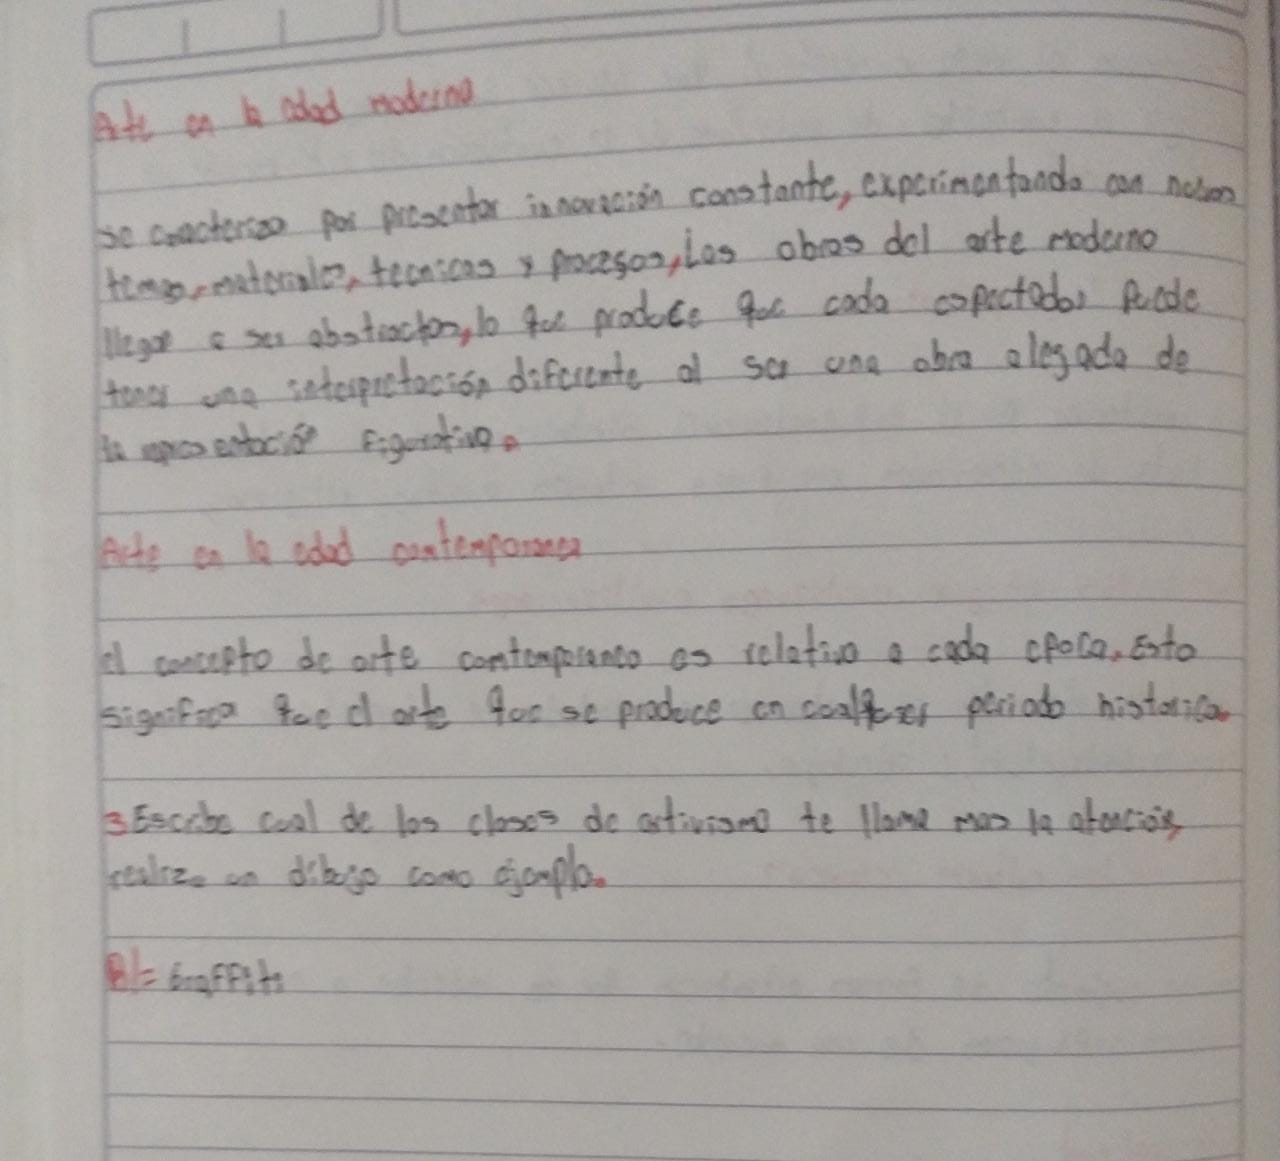 Arte en la edad moderna
se caracteriza por presentar innovación constante, experimentando con nuevos
temas, materiales, tecnicas y procesos, Las obras del arte moderno
llegar a ser abstractas, lo que produce que cada espectador puede
tener una interpretación diferente al ser una obra alegada de
la representación figurativa.
Arte en la edad contemporanea
el concepto de arte contemporaneo es relativo a cada epoca, Esto
significa que el arte que se produce en cualquier periodo historico.
3 Escribe cual de las clases de artivismo te llama mas la atención,
realiza un dibujo como ejemplo.
R/= Graffiti